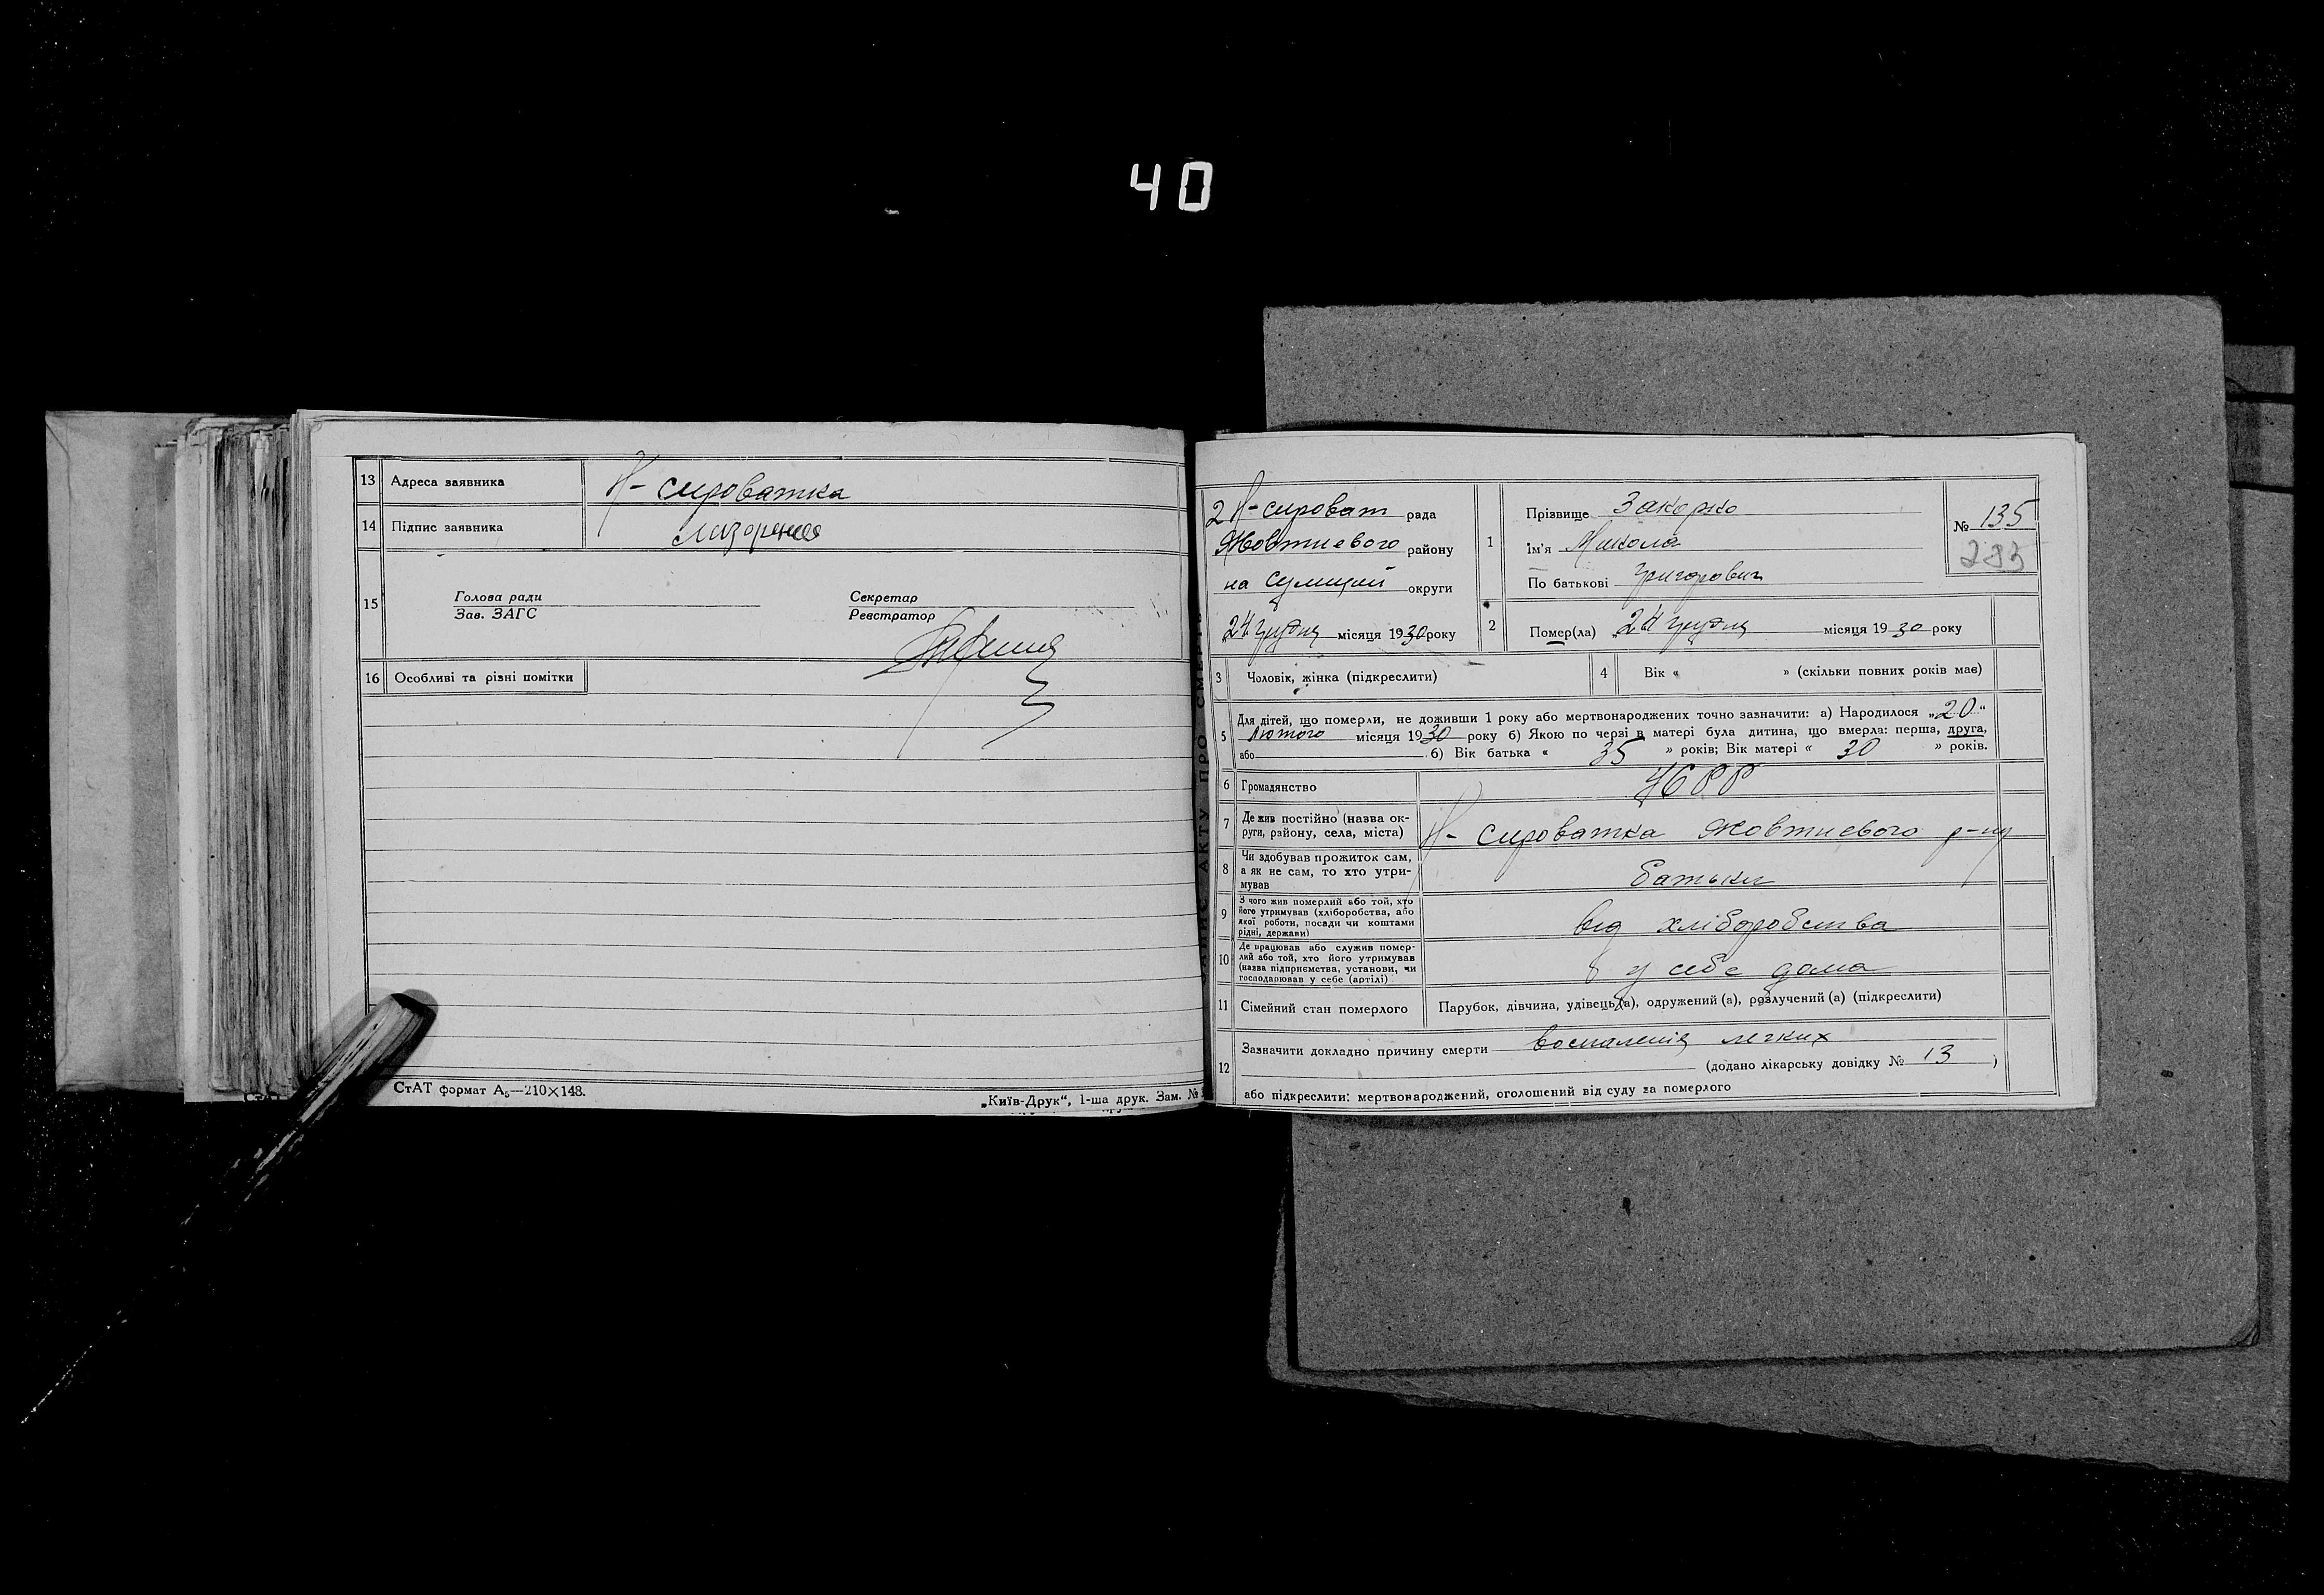 40
13 Адреса заявника Н- сироватка
14 Підпис заявника
15 Голова ради Секретар
Зав. ЗАГС Реєстратор
16 Особливі та різні помітки
СтАТ формат А₅—210×148.
„Київ-Друк“, 1-ша друк. Зам. №
2 Н- сироват рада
Жовтневого району
на Сумщині округи
24 грудня місяця 1930 року
1 Прізвище Закорко
Ім'я Микола
По батькові Григорович
№ 135
293
2 Помер(ла) „24 грудня місяця 1930 року
3 Чоловік, жінка (підкреслити) 4 Вік « » (скільки повних років має)
5 Для дітей, що померли, не доживши 1 року або мертвонароджених точно зазначити: а) Народилося „20“
Лютого місяця 1930 року б) Якою по черзі в матері була дитина, що вмерла: перша, друга,
або б) Вік батька « 35 » років; Вік матері « 30 » років.
6 Громадянство УСРР
7 Де жив постійно (назва ок-
руги, району, села, міста) Н- Сироватка Жовтневого р-ну
8 Чи здобував прожиток сам,
а як не сам, то хто утри-
мував батьки
9 З чого жив померлий або той, хто
його утримував (хліборобства, або
якої роботи, посади чи коштами
рідні, держави) від хліборобства
10 Де працював або служив помер-
лий або той, хто його утримував
(назва підприємства, установи, чи
господарював у себе (артілі) у себе дома
11 Сімейний стан померлого Парубок, дівчина, удівець(а), одружений (а), розлучений (а) (підкреслити)
12 Зазначити докладно причину смерти воспаления легких
(додано лікарську довідку № 13 )
або підкреслити: мертвонароджений, оголошений від суду за померлого